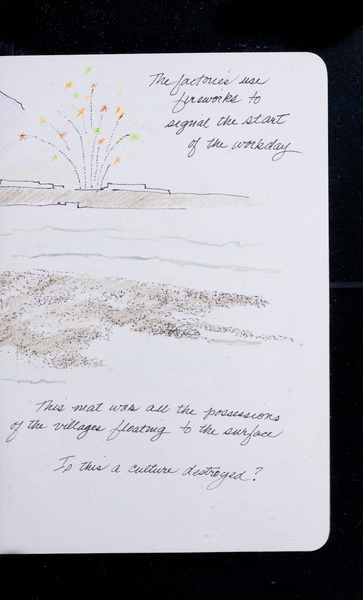 The factories use
fireworks to
signal the start
of the workday
This mat was all the possessions
of the villages floating to the surface
Is this a culture destroyed?